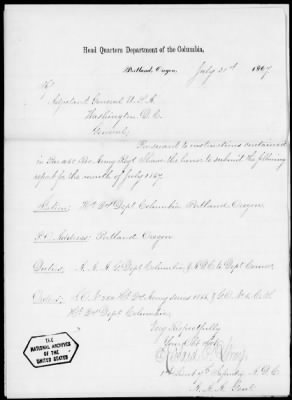 Head Quarters Department of the Columbia,
Portland, Oregon, July 31st 1867
To
Adjutant General U.S.A.
Washington D.C.
General,
Pursuant to instructions contained
in Army Regs I have the honor to submit the following
report for the month of July 1867
Station: Hd Qrs Dept Columbia Portland Oregon
P.O. Address: Portland Oregon
Duties: A.A.A.G. Dept Columbia & A.D.C. to Dept Comdr
Orders: Hd Qrs Army & G.O. No
Hd Qrs Dept Columbia,
Very Respectfully
Your Obt Servt
1st Lieut Infantry A.D.C.
A.A.A. Genl
THE
NATIONAL ARCHIVES
OF THE
UNITED STATES